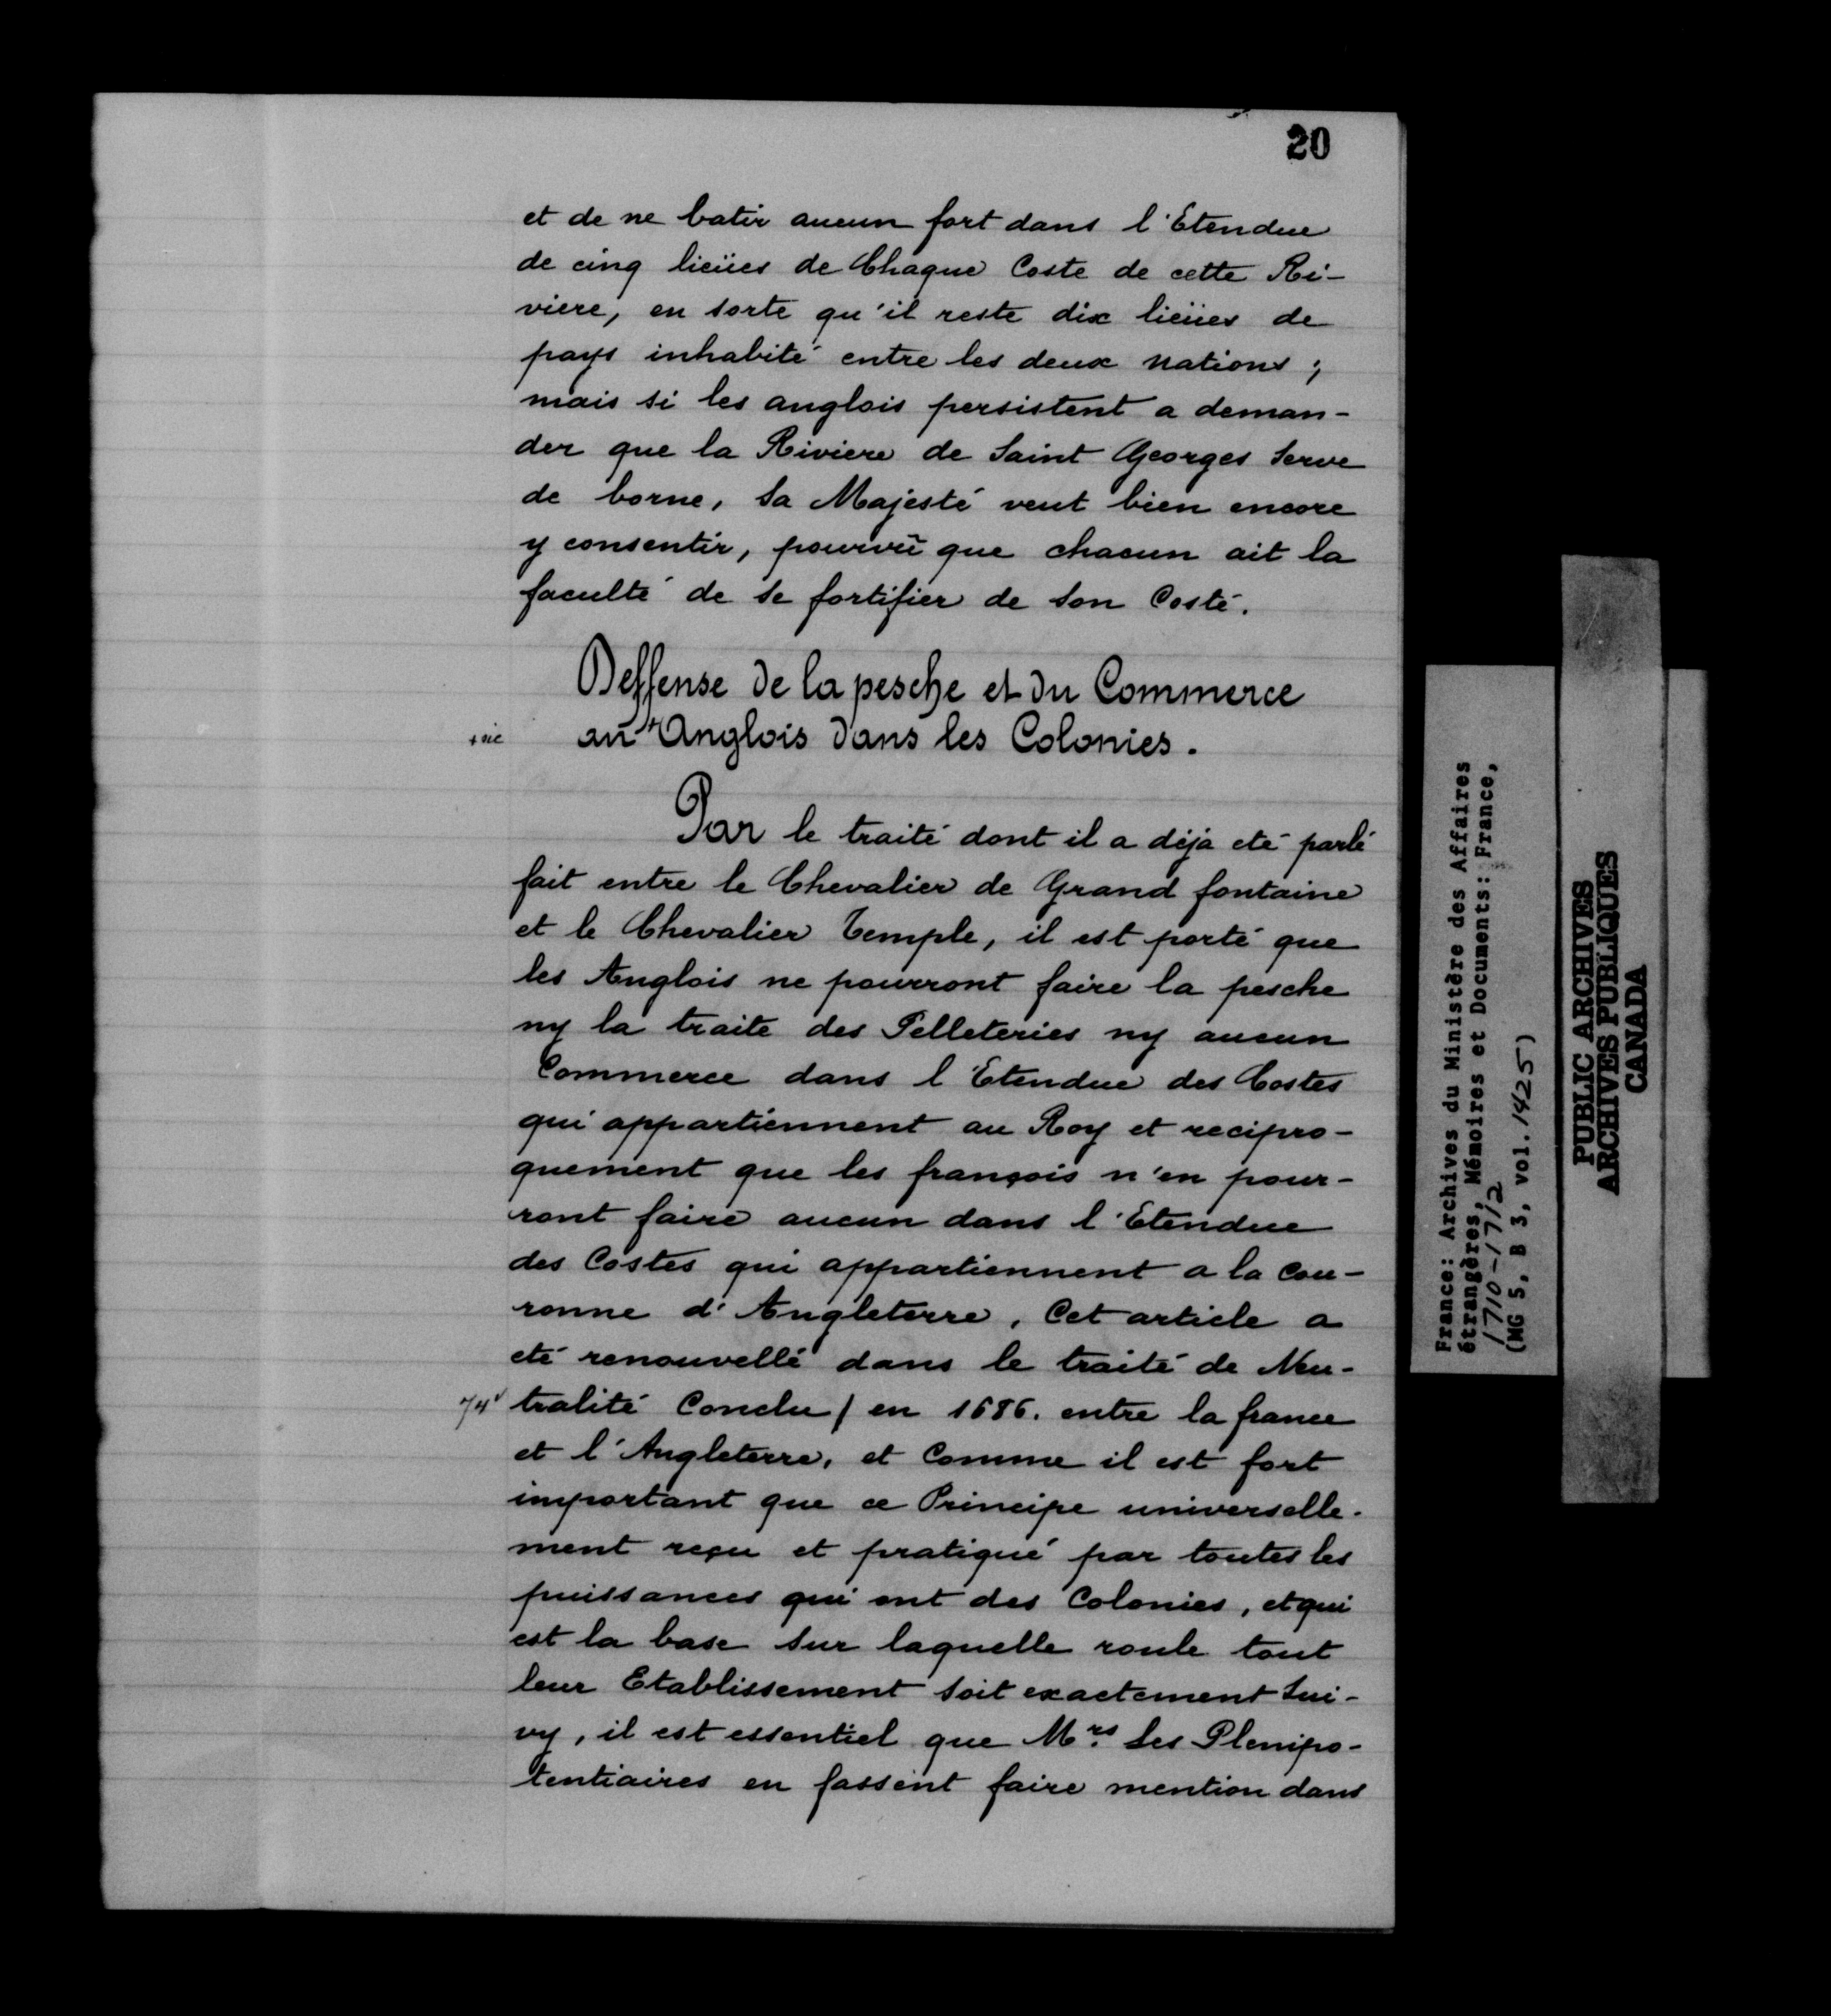 20
et de ne batir aucun fort dans l'Etendue
de cinq lieües de Chaque Coste de cette Ri-
viere, en sorte qu'il reste dix lieües de
pays inhabité entre les deux nations ;
mais si les anglois persistent a deman-
der que la Riviere de Saint Georges Serve
de borne, Sa Majesté veut bien encore
y consentir, pourvû que chacun ait la
faculté de se fortifier de son Costé.
Deffense de la pesche et du Commerce
+ sic au + Anglois dans les Colonies.
Par le traité dont il a déja eté parlé
fait entre le Chevalier de Grand fontaine
et le Chevalier Temple, il est porté que
les Anglois ne pourront faire la pesche
ny la traite des Pelleteries ny aucun
Commerce dans l'Etendue des Costes
qui appartiennent au Roy et recipro-
quement que les françois n'en pour-
ront faire aucun dans l'Etendue
des Costes qui appartiennent a la Cou-
ronne d'Angleterre. Cet article a
eté renouvellé dans le traité de Neu-
74v tralité Conclu / en 1686. entre la france
et l'Angleterre, et Comme il est fort
important que ce Principe universelle-
ment reçu et pratiqué par toutes les
puissances qui ont des Colonies, et qui
est la base sur laquelle roule tout
leur Etablissement soit exactement Sui-
vy, il est essentiel que Mrs. Les Plenipo-
tentiaires en fassent faire mention dans
France: Archives du Ministère des Affaires
étrangères, Mémoires et Documents: France,
1710-1712
(MG 5, B 3, vol. 1425)
PUBLIC ARCHIVES
ARCHIVES PUBLIQUES
CANADA